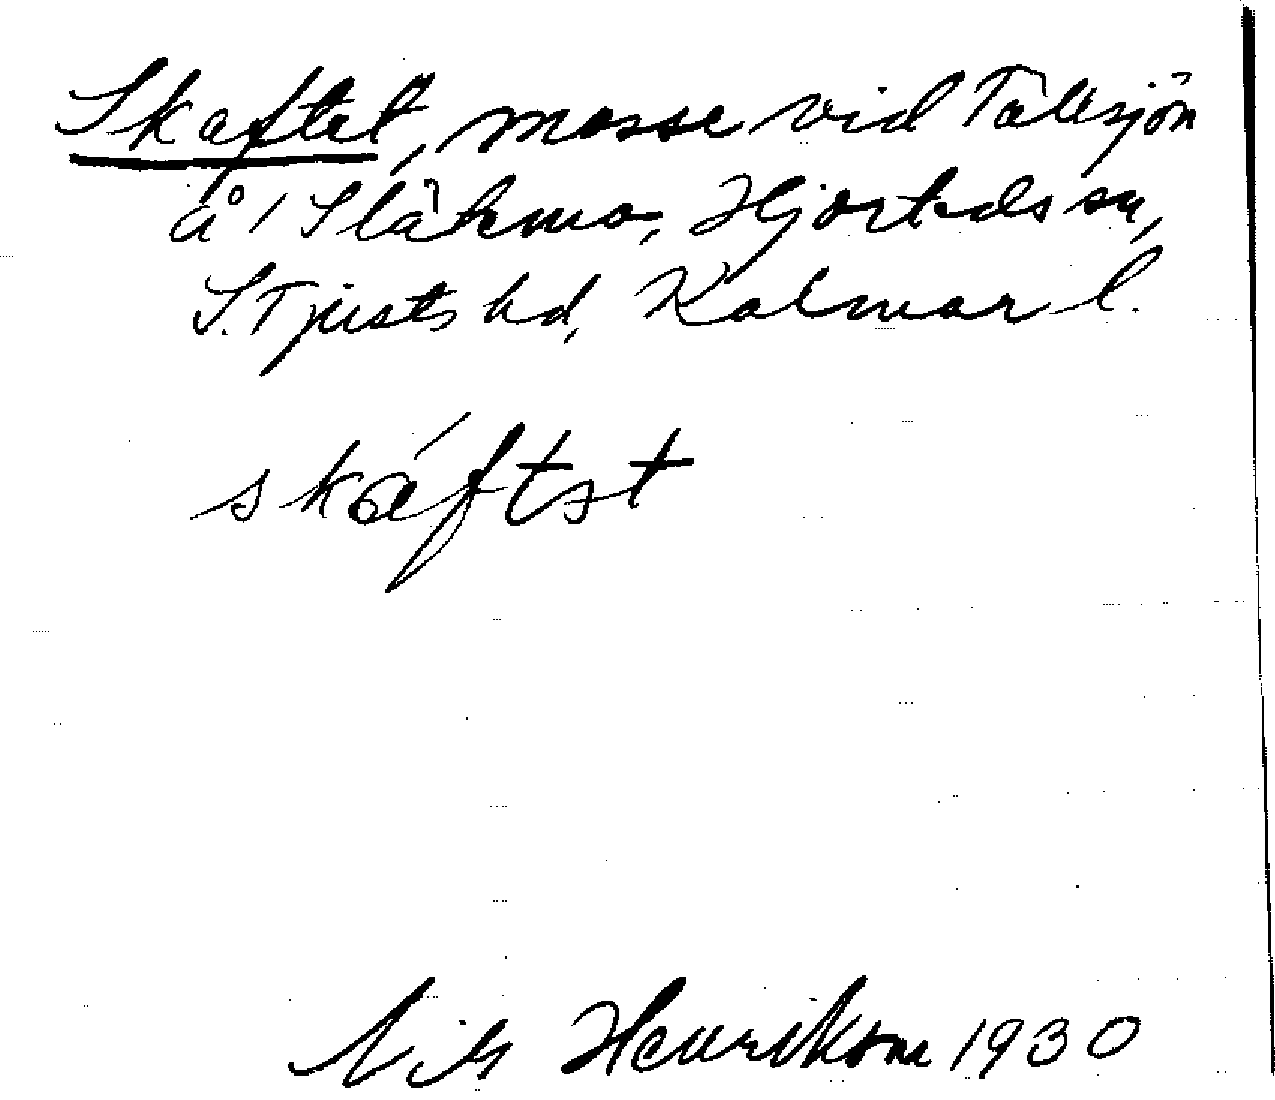 Skaftet, mosse vid Tällsjön
å 1 Släthmo, Hjorteds sn,
S. Tjusts hd, Kalmar l.
skáftət
Nils Henriksson 1930